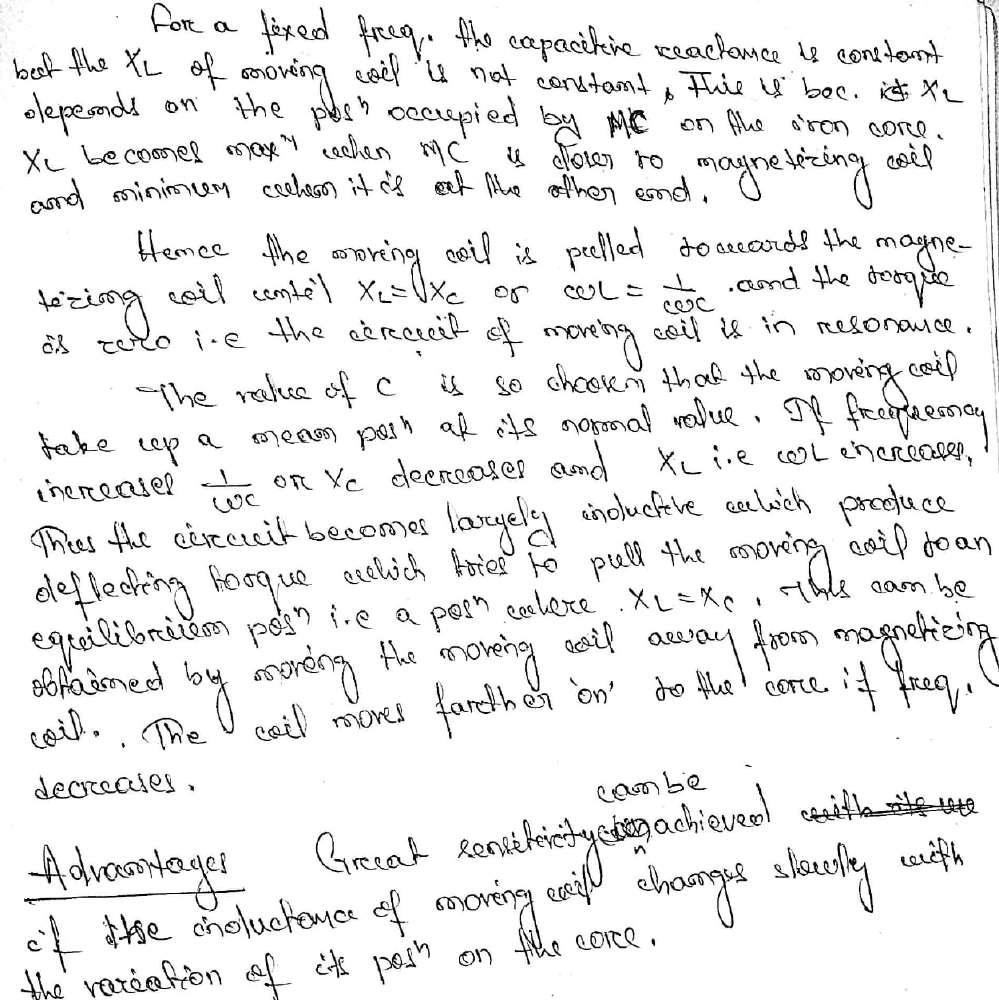 For a fixed freq. the capacitive reactance is constant
but the XL of moving coil is not constant, This is bec. XL
depends on the posn occupied by MC on the iron core.
XL becomes maxm when MC is closer to magnetizing coil
and minimum when it is at the other end.
Hence the moving coil is pulled towards the magne-
tizing coil until XL = XC or ωL = 1/ωC . and the torque
is zero i.e the circuit of moving coil is in resonance.
The value of C is so choosen that the moving coil
take up a mean posn at its normal value. If frequency
increases 1/ωC or XC decreases and XL i.e ωL increases.
Thus the circuit becomes largely inductive which produce
deflecting torque which tries to pull the moving coil to an
equilibrium posn i.e a posn where XL = XC. This can be
obtained by moving the moving coil away from magnetizing
coil. The coil moves farther 'on' to the core if freq.
decreases.
Advantages Great sensitivity can be achieved
if the inductance of moving coil changes slowly with
the variation of its posn on the core.